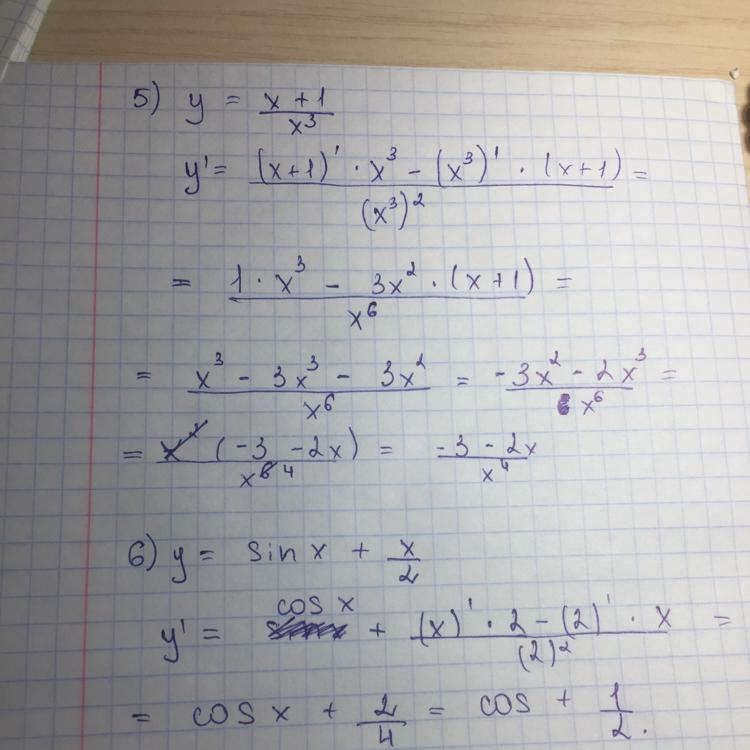 5) y = (x + 1)/x³
y' = ((x+1)' · x³ − (x³)' · (x+1))/(x³)² =
= (1 · x³ − 3x² · (x+1))/x⁶ =
= (x³ − 3x³ − 3x²)/x⁶ = (-3x² − 2x³)/x⁶ =
= x²(-3 − 2x)/x⁶ ⁴ = (-3 − 2x)/x⁴
6) y = sin x + x/2
y' = cos x + ((x)' · 2 − (2)' · x)/(2)² =
= cos x + 2/4 = cos + 1/2.